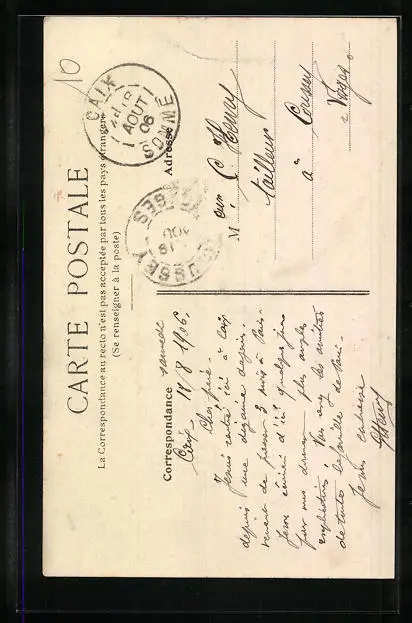 10
CARTE POSTALE
La Correspondance au recto n'est pas acceptée par tous les pays étrangers
(Se renseigner à la poste)
CAIX
18
AOUT
06
SOMME
COUSSEY
VOSGES
Correspondance
Adresse
samedi
Caix 18 8 1906.
Cher père.
Je suis rentré ici à Caix
depuis une dizaine de jours.
venant de passer 3 mois à Paris.
Je vous écrirai d'ici quelques jours
pour vous donner plus amples
explications. Vous avez les amitiés
de toute la famille de Paris.
Je vous embrasse
Henry
M
C. Henry
tailleur
à
Coussey
Vosges